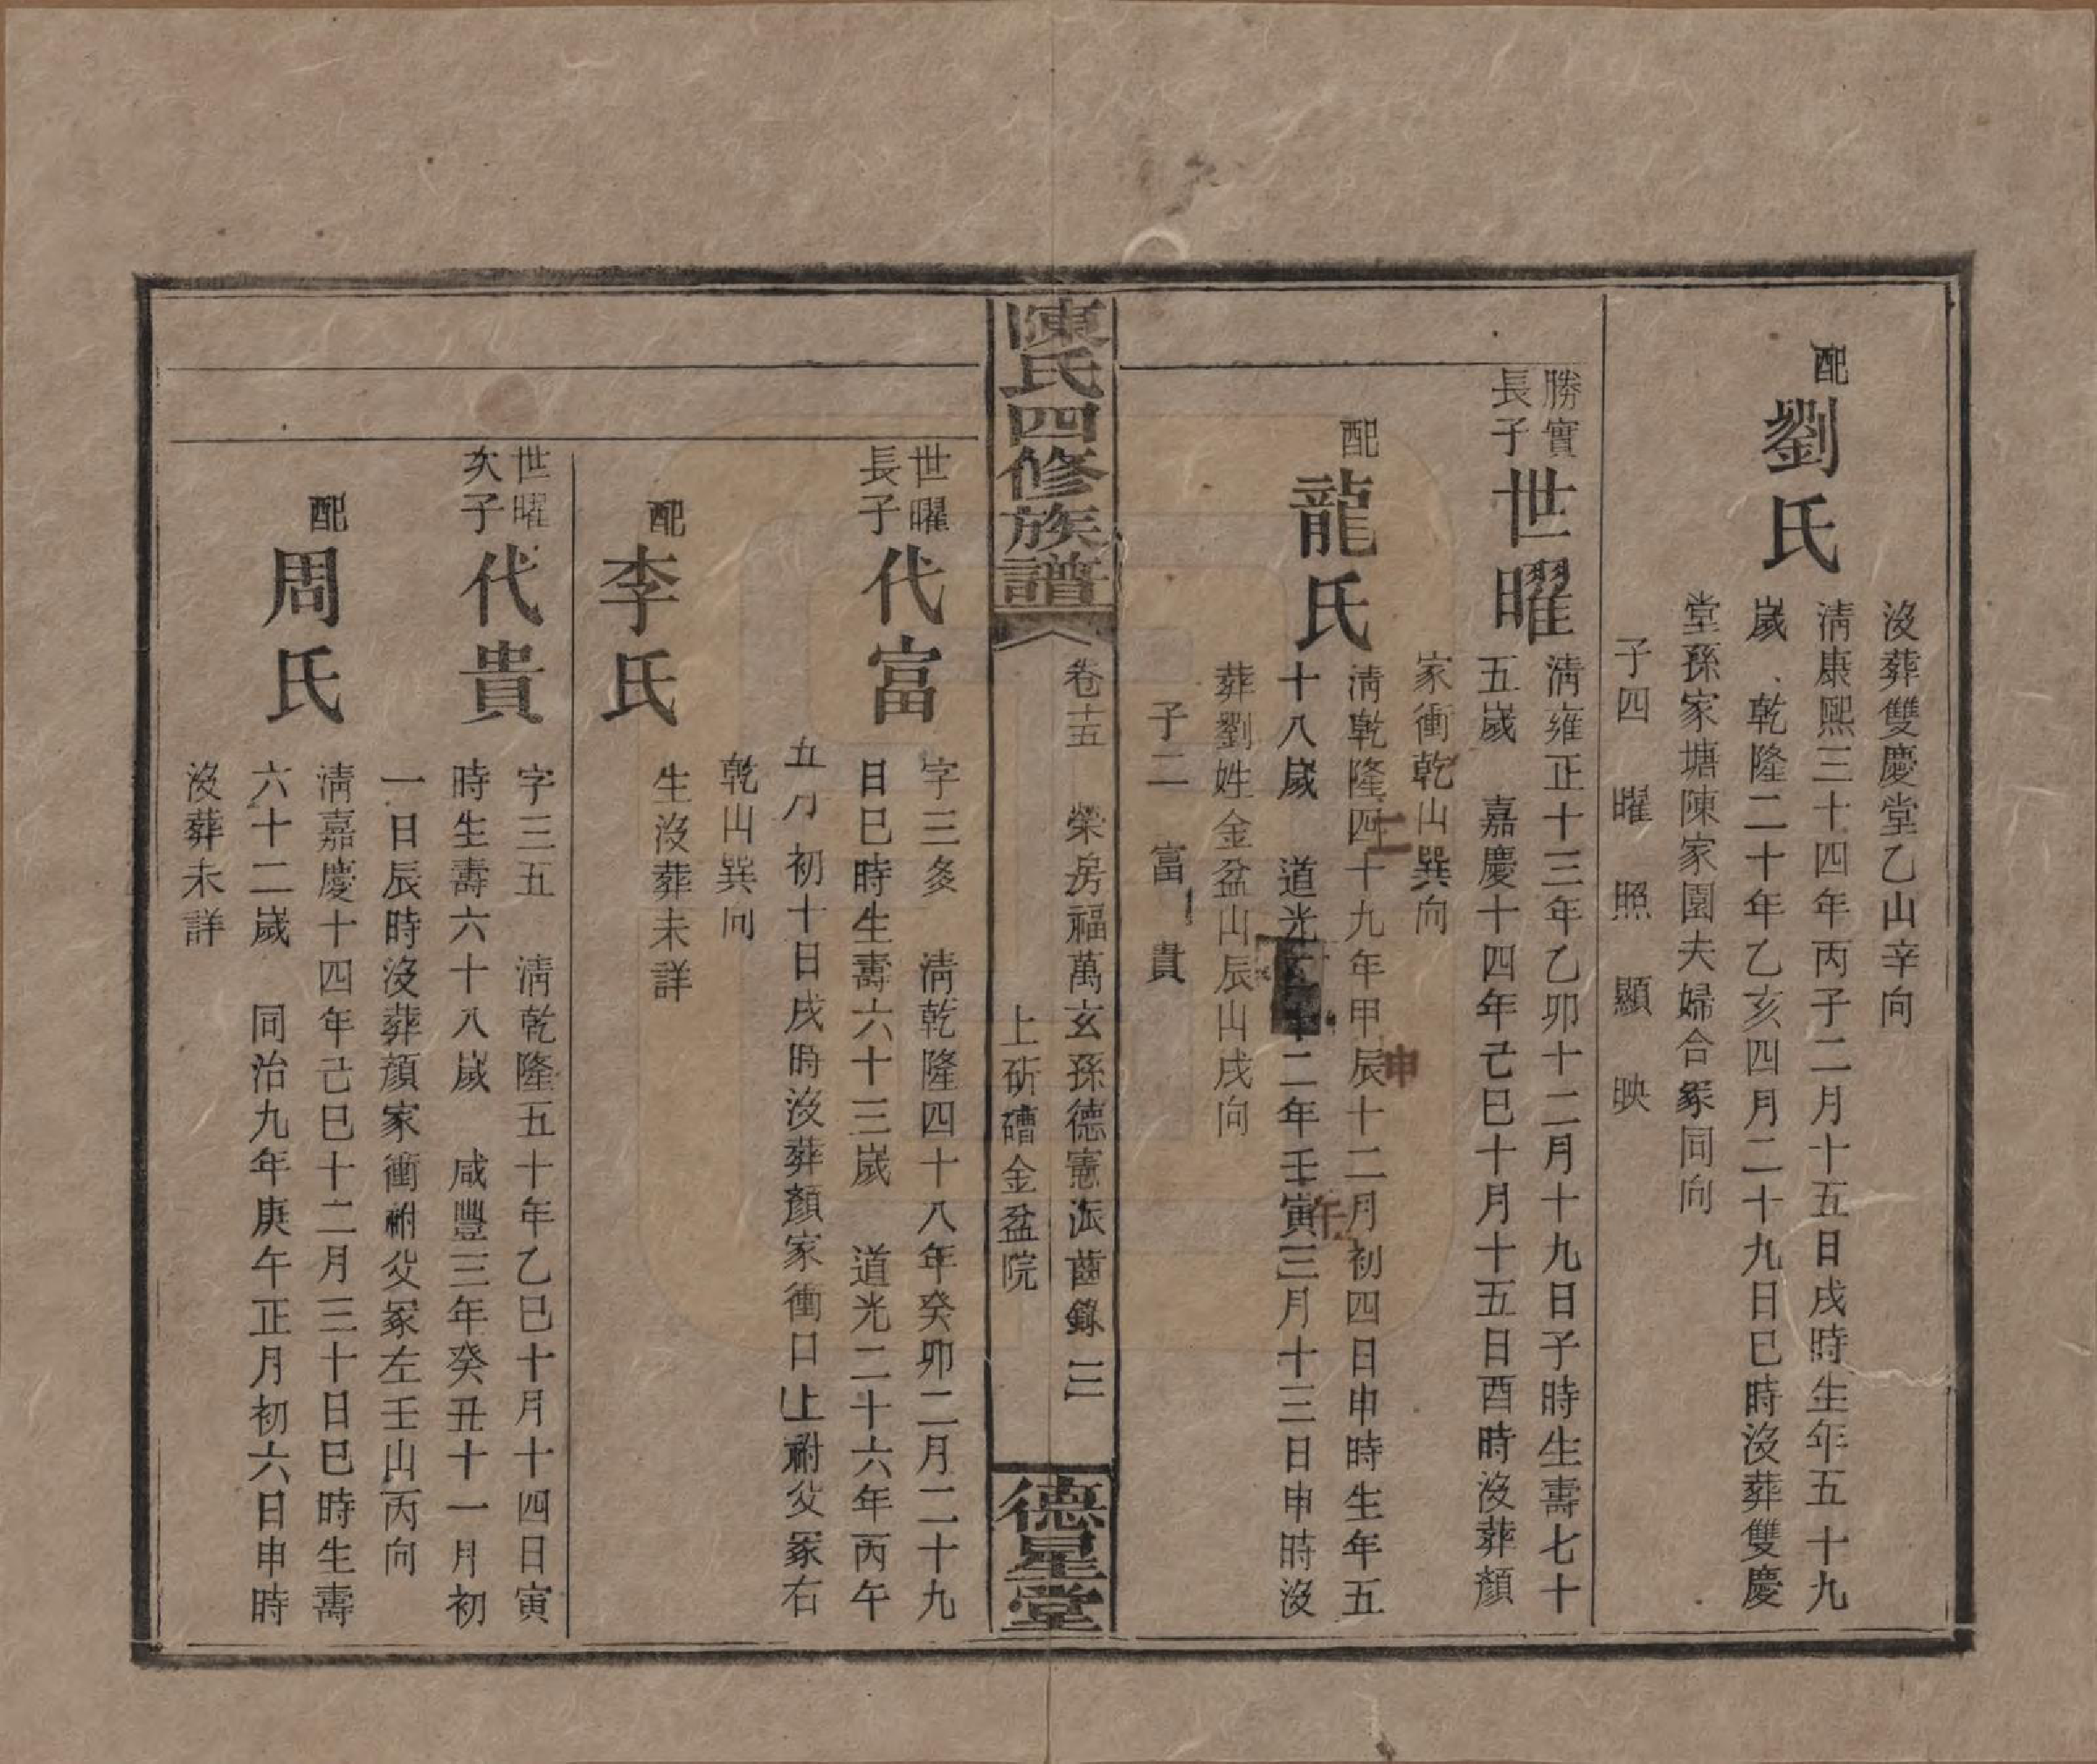 沒葬雙慶堂乙山辛向
配劉氏
清康熙三十四年丙子二月十五日戌時生年五十九
歲 乾隆二十年乙亥四月二十九日巳時沒葬雙慶
堂孫家塘陳家園夫婦合冢同向
子四 曜 照 顯 映
勝實
長子
世曜
清雍正十三年乙卯十二月十九日子時生壽七十
五歲 嘉慶十四年己巳十月十五日酉時沒葬顏
家衝乾山巽向
配龍氏
清乾隆四十九年甲辰十二月初四日申時生年五
十八歲 道光二十二年壬寅三月十三日申時沒
葬劉姓金盆山辰山戌向
子二 富 貴
二
申
午
陳氏四修族譜
卷十五 榮房福萬玄孫德憲派齒錄 三
上斫磳金盆院
德星堂
世曜
長子
代富
字三多 清乾隆四十八年癸卯二月二十九
日巳時生壽六十三歲 道光二十六年丙午
五月初十日戌時沒葬顏家衝口上祔父冢右
乾山巽向
配李氏
生沒葬未詳
世曜
次子
代貴
字三五 清乾隆五十年乙巳十月十四日寅
時生壽六十八歲 咸豐三年癸丑十一月初
一日辰時沒葬顏家衝祔父冢左壬山丙向
配周氏
清嘉慶十四年己巳十二月三十日巳時生壽
六十二歲 同治九年庚午正月初六日申時
沒葬未詳